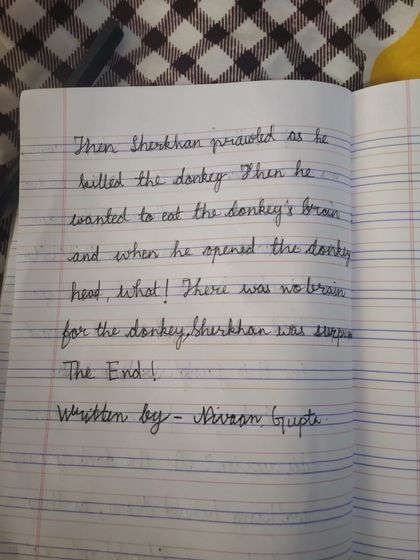 Then Sherkhan prawled as he
killed the donkey. Then he
wanted to eat the donkey's brain
and when he opened the donkey
head, what! There was no brain
for the donkey, Sherkhan was
The End!
Written by - Nivaan Gupta.